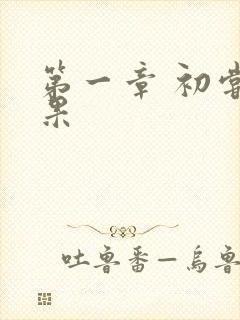 第一章 初尝
果
吐鲁番—乌鲁